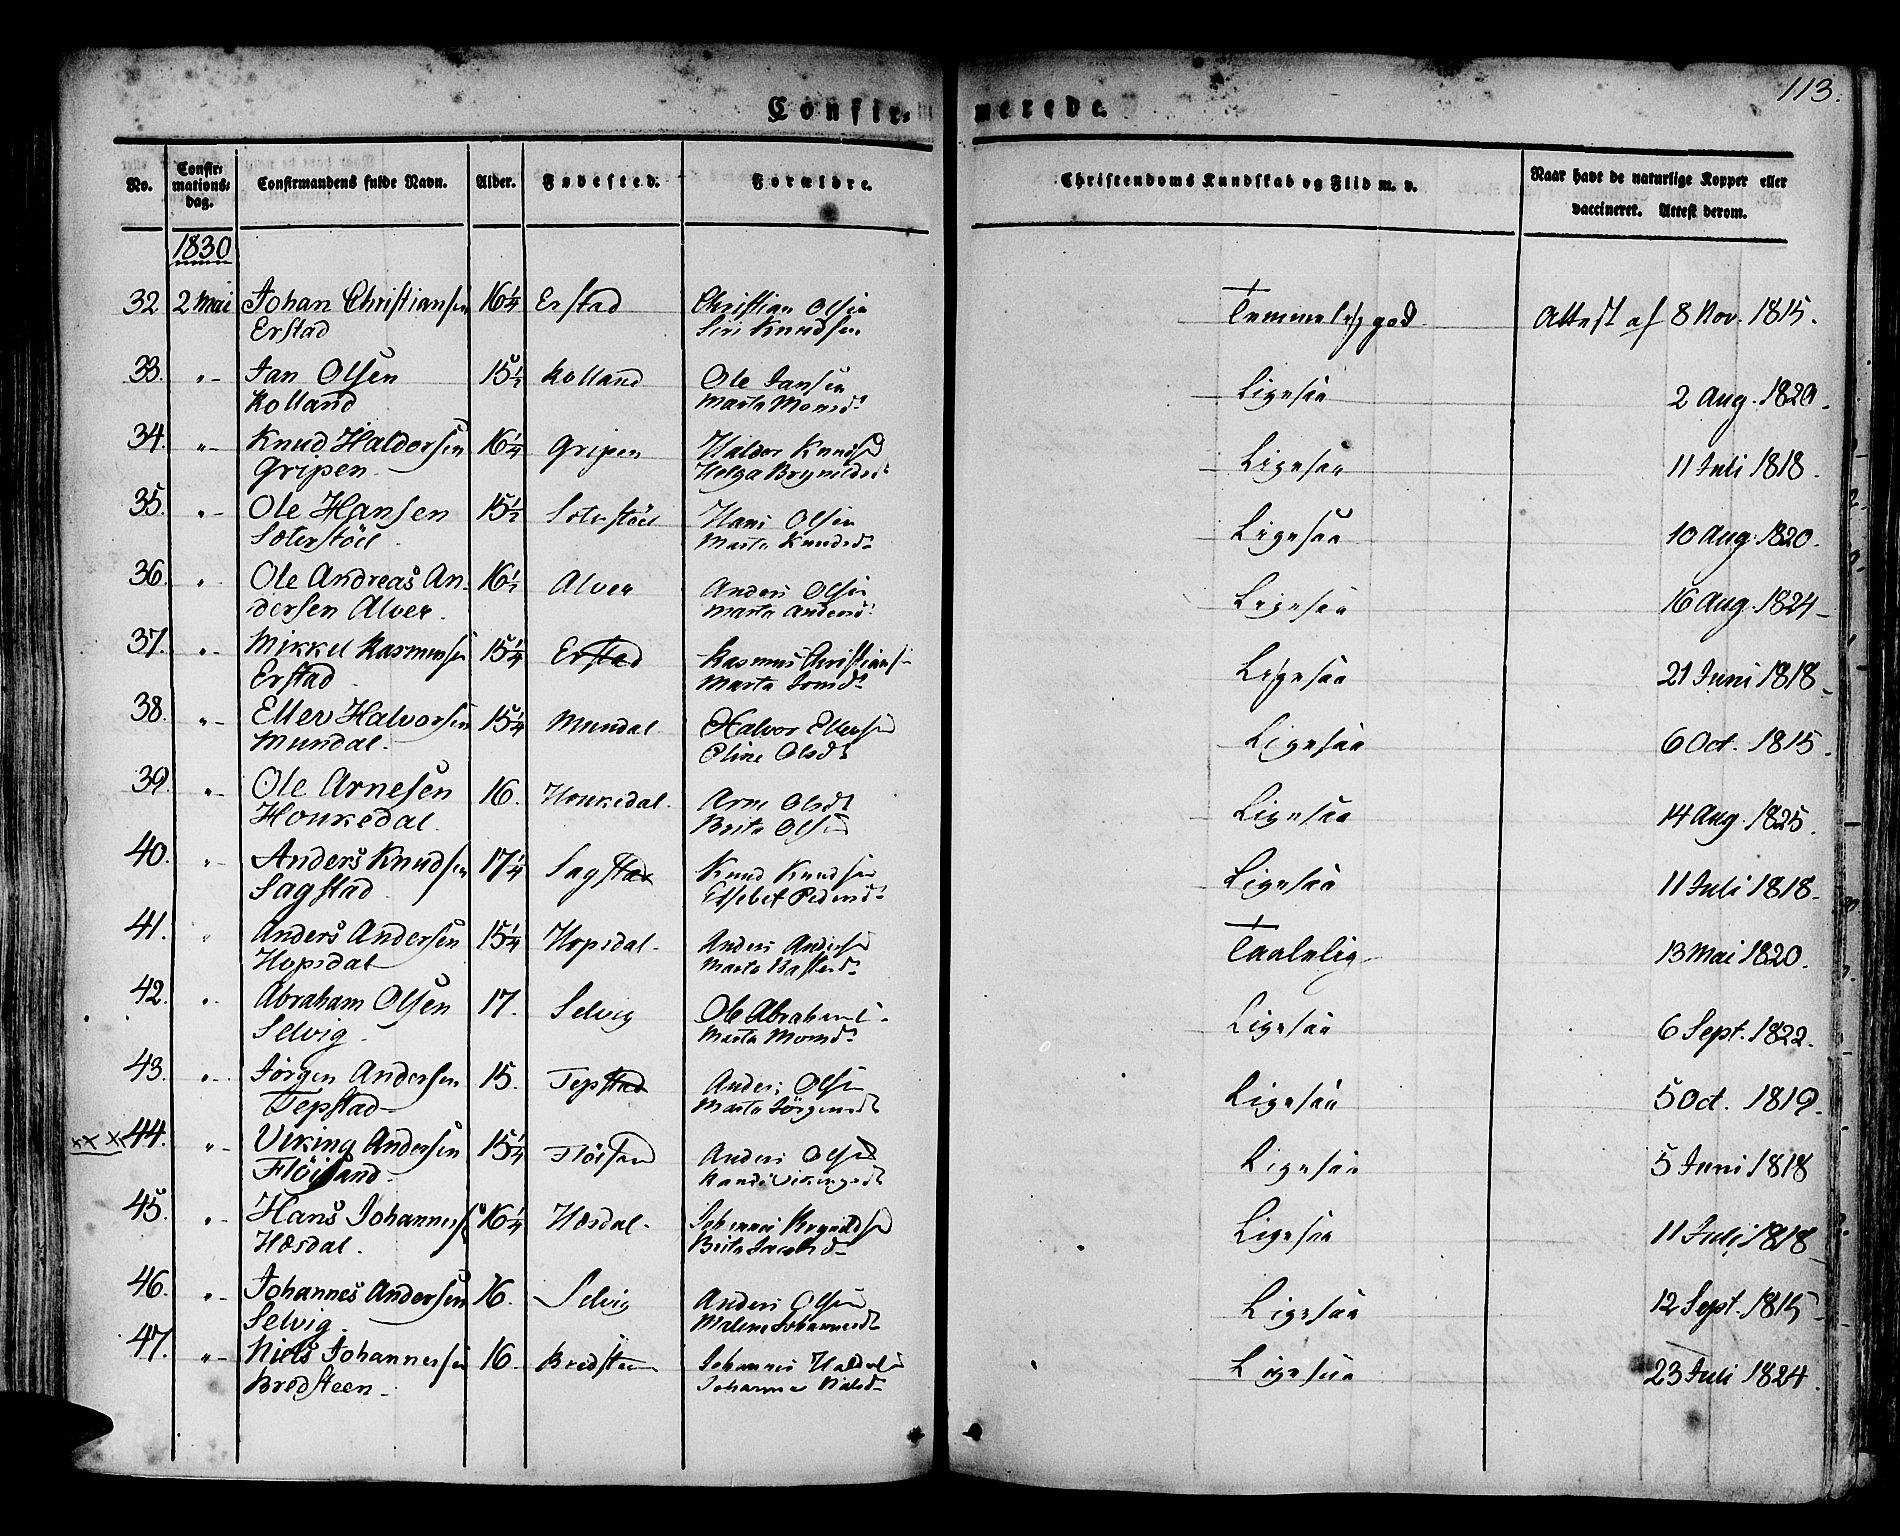 113.
Confir-merede.
No. Confir-mations-dag. Confirmandens fulde Navn. Alder. Fødested. Forældre. Christendoms Kundskab og Flid m. v. Naar havt de naturlige Kopper eller vaccineret. Attest derom.
1830
32 2 Mai Johan Christiansen 16 1/4 Erstad Christian Olsen Temmelig god Attest af 8 Nov. 1815.
Erstad Siri Knudsen
33. "- Jan Olsen 15 1/2 Kolland Ole Jansen Ligesaa 2 Aug. 1820.
Kolland Marta Monsd.
34. "- Knud Haldorsen 16 1/4 Gripen Haldor Knudsen Ligesaa 11 Juli 1818.
Gripen Helga Brynildsd.
35. "- Ole Hansen 15 1/2 Soterstöel Hans Olsen Ligesaa 10 Aug. 1820.
Soterstöel Marta Knudsd.
36. " Ole Andreas An- 16 1/2 Alver Anders Olsen Ligesaa 16 Aug. 1824
dersen Alver. Marta Andersd.
37. "- Mikkel Rasmussen 15 1/4 Erstad Rasmus Christians Ligesaa 21 Juni 1818
Erstad Marta Jonsd.
38. "- Eller Halvorsen 15 1/4 Mundal Halvor Ellersen Ligesaa 6 Oct. 1815.
Mundal. Oline Olsd.
39. "- Ole Arnesen 16. Houkedal. Arne Olsd. Ligesaa 14 Aug. 1825.
Houkedal. Brita Olsen
40. " Anders Knudsen 17 1/4 Sagstad Knud Knudsen Ligesaa 11 Juli 1818.
Sagstad Elsebet Pedersd.
41. " Anders Andersen 15 1/4 Hopsdal. Anders Andersen Taalelig 13 Mai 1820.
Hopsdal Marta
42. ". Abraham Olsen 17. Selvig Ole Abrahams. Ligesaa 6 Sept. 1822.
Selvig. Marta Monsd.
43. "- Jörgen Andersen 15. Tepstad Anders Olsen Ligesaa 5 Oct. 1819.
Tepstad Marta Jörgensd.
44. "- Viking Andersen 15 1/4 Flöisand Anders Olsen Ligesaa 5 Juni 1818
Flöisand. Randi Vikingsd.
45. "- Hans Johanness 16 1/4 Hæsdal. Johannes Ligesaa 11 Juli 1818
Hæsdal. Brita Jacobsd.
46. "- Johannes Andersen 16. Selvig Anders Olsen Ligesaa 12 Sept. 1815
Selvig. Malene Johannesd.
47. "- Niels Johannessen 16. Bredsteen Johannes Ligesaa 23 Juli 1824.
Bredsteen. Johanna